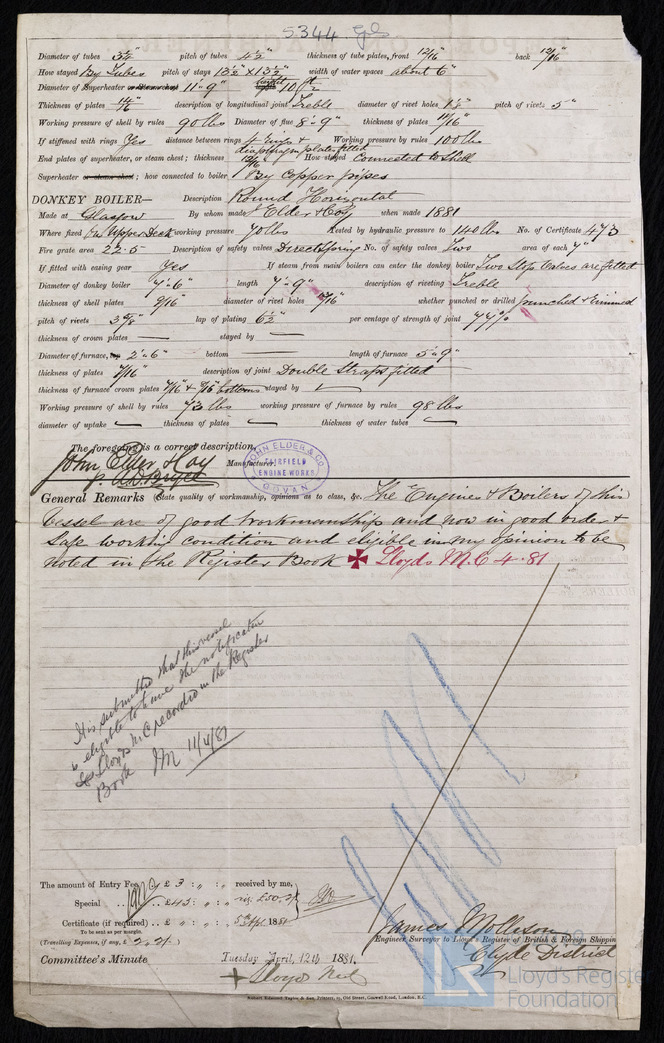 5344 gls
Diameter of tubes 3½" pitch of tubes 4½" thickness of tube plates, front 12/16" back 12/16"
How stayed By Tubes pitch of stays 13½" x 13½" width of water spaces about 6"
Diameter of Superheater or steam chest 11'-9" length 10 ft
Thickness of plates description of longitudinal joint Treble diameter of rivet holes pitch of rivets 5"
Working pressure of shell by rules 90 lbs Diameter of flue 8'-9" thickness of plates 11/16"
If stiffened with rings Yes distance between rings 4 rings & diaphragm plates fitted Working pressure by rules 100 lbs
End plates of superheater, or steam chest; thickness 12/16 How stayed Connected to Shell
Superheater or steam chest; how connected to boiler By Copper pipes
DONKEY BOILER— Description Round Horizontal
Made at Glasgow By whom made J Elder & Coy when made 1881
Where fixed On Upper Deck working pressure 70 lbs tested by hydraulic pressure to 140 lbs No. of Certificate 473
Fire grate area 22.5 Description of safety valves Direct Spring No. of safety valves Two area of each 7"
If fitted with easing gear Yes If steam from main boilers can enter the donkey boiler Two Stop Valves are fitted
Diameter of donkey boiler 7'-6" length 7'-9" description of riveting Treble
thickness of shell plates 9/16" diameter of rivet holes 15/16" whether punched or drilled punched & rimmed
pitch of rivets 3⅝" lap of plating 6½" per centage of strength of joint 74%
thickness of crown plates — stayed by —
Diameter of furnace, top 2'-6" bottom — length of furnace 5'-9"
thickness of plates 7/16" description of joint Double Straps fitted
thickness of furnace crown plates 7/16 & 7/16 bottoms stayed by
Working pressure of shell by rules 73 lbs working pressure of furnace by rules 98 lbs
diameter of uptake thickness of plates thickness of water tubes
The foregoing is a correct description,
John Elder & Coy Manufacturer.
JOHN ELDER & CO
FAIRFIELD
ENGINE WORKS
GOVAN
General Remarks (State quality of workmanship, opinions as to class, &c. The Engines & Boilers of this
Vessel are of good Workmanship and now in good order &
Safe working condition and eligible in my opinion to be
noted in the Register Book ✠ Lloyds M.C 4.81
It is submitted that this vessel
is eligible to have the notification
Lloyds M.C recorded in the Register
Book JM 11/4/81
The amount of Entry Fee .. £ 3 : „ : „ received by me,
Special .. .. £43 : „ : „
Certificate (if required) .. £ „ : „ : „ 5th Apl. 1881
To be sent as per margin.
(Travelling Expenses, if any, £ 2.2.)
James Mollison
Engineer Surveyor to Lloyd's Register of British & Foreign Shipping
Clyde District
Committee's Minute Tuesday April, 12th 1881.
+ Lloyds M.C.
Lloyd's Register
Foundation